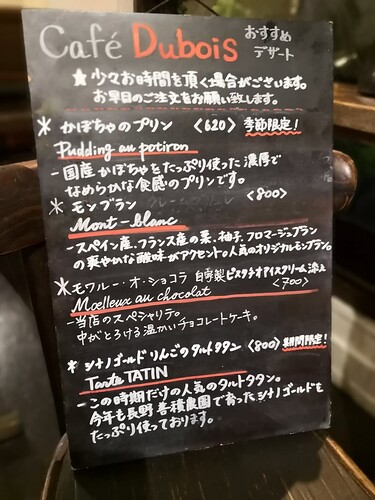 Café Dubois おすすめ
デザート
★少々お時間を頂く場合がございます。
お早目のご注文をお願い致します。
* かぼちゃのプリン 〈620〉 季節限定!
Pudding au potiron
- 国産かぼちゃをたっぷり使った濃厚で
なめらかな食感のプリンです。
* モンブラン 〈800〉
Mont-blanc
- スペイン産、フランス産の栗、柚子、フロマージュブラン
の爽やかな酸味がアクセント。人気のオリジナルモンブラン。
* モワルー・オ・ショコラ 自家製ピスタチオアイスクリーム添え
Mœlleux au chocolat 〈700〉
- 当店のスペシャリテ。
中がとろける温かいチョコレートケーキ。
* シナノゴールドりんごのタルトタタン 〈800〉期間限定!
Tarte TATIN
- この時期だけの人気のタルトタタン。
今年も長野 春積農園で育ったシナノゴールドを
たっぷり使っております。